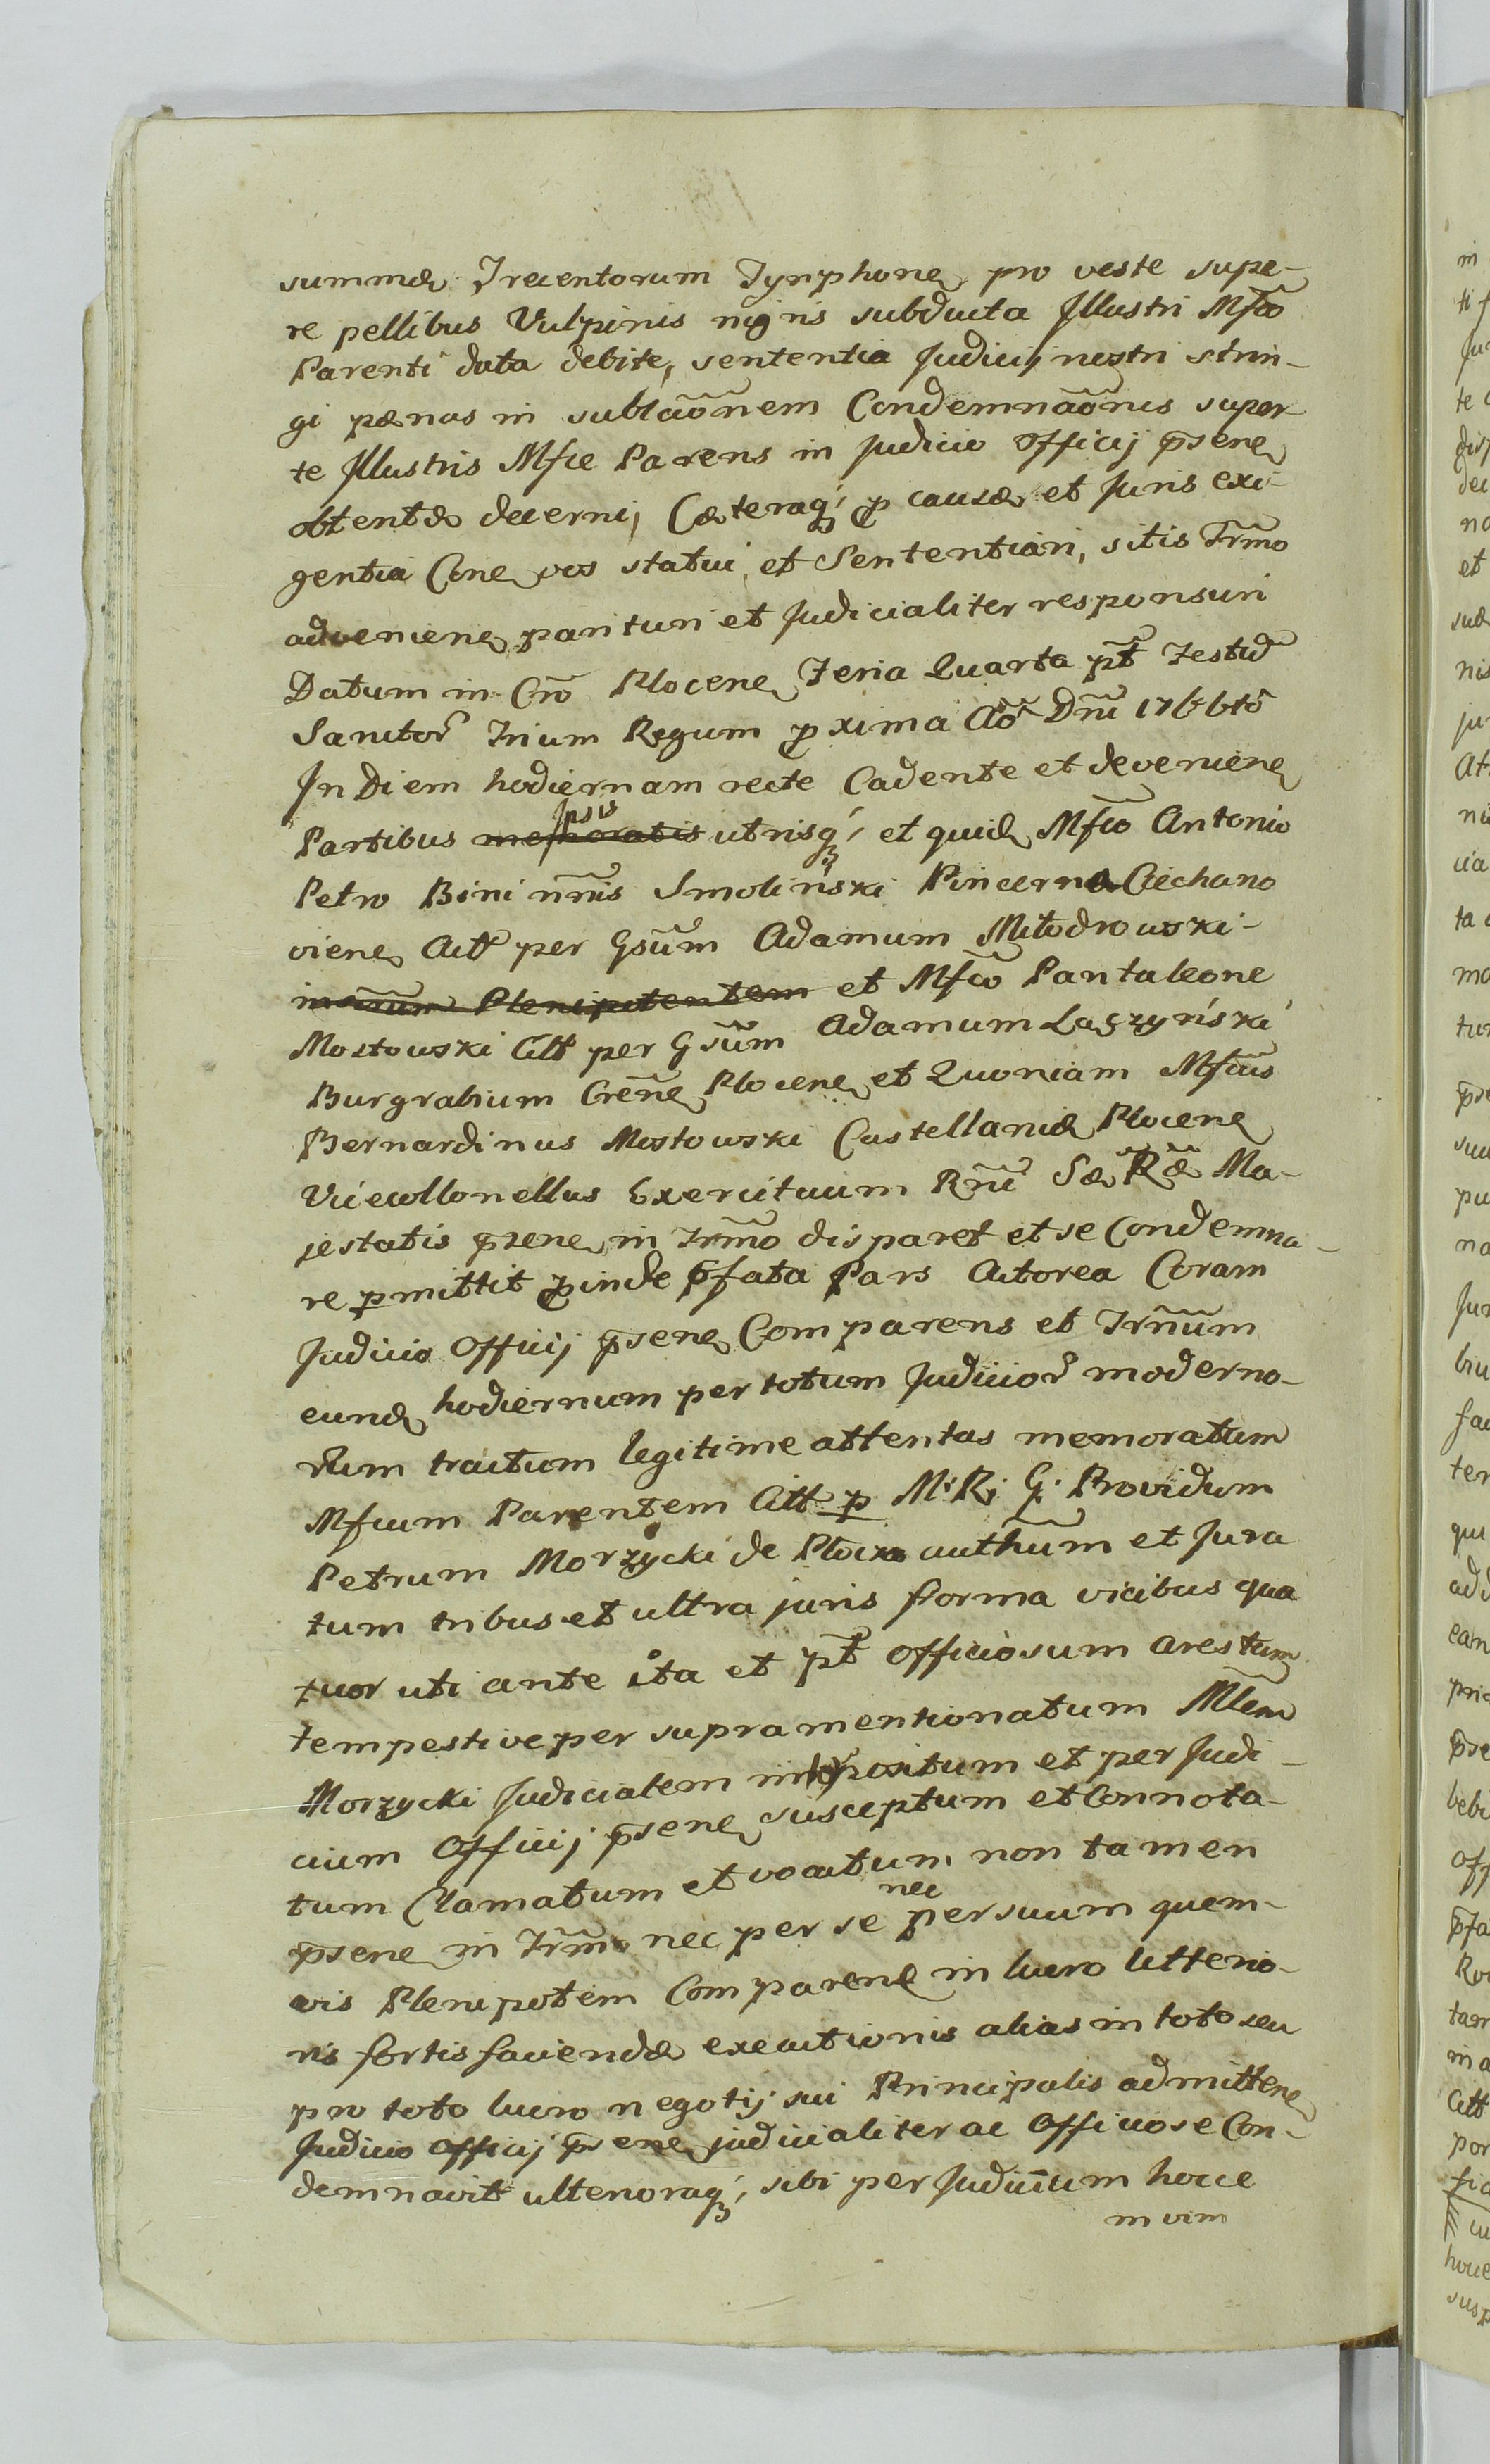 summæ Trecentorum Tynphonę pro veste supe-
re pellibus Vulpinis nigris subducta Illustri Mfco
Parenti data debite, sententia Judicij nostri strin-
gi pænas in sublaõnem Condemnaõnis super
te Illustris Mfce Parens in Judicio Officij p̃senę
obtentæ decerni, Cæteraq; p causæ et Juris exi-
gentia Cone vos statui et Sententiari, sitis Trm̃o
advenienę parituri et Judicialiter responsuri
Datum in Crõ Plocenę Feria Quarta pt̃ Festũ
Sanctor̃ Trium Regum pxima Aõ Dnĩ
In Diem hodiernam recte Cadente et devenienę
Partibus memoratis Ipsis utrisq; et quidę Mfco Antonio
Petro Bini nñis Smoliński Pincerna Ciechano
vienę Actt per Gsũm Adamum Miłodrowski-
Plenipotentem et Mfco Pantaleone
Mostowski Citt per Gsũm Adamum Laszyński
Burgrabium Crẽnę Plocenę et Quoniam Mfcus
Bernardinus Mostowski Castellanidę Plocenę
Vicecollonellus Exercituum Rnĩ Sæ Ræ Ma-
jestatis p̃senę in Trm̃o disparet et se Condemna-
re pmittit pinde p̃fata Pars Actorea Coram
Judicio Officij p̃senę Comparens et Trñum
eundę hodiernum per totum Judicior̃ moderno-
rum tractum legitime attentas memoratum
Mfcum Parentem Citt p M: R: G: Providum
Petrum Morzycki de Płock authũm et Jura
tum tribus et ultra juris forma vicibus qua
tuor uti ante ita et pt̃ Officiosum arestum
tempestive per supramentionatum Mlem
Morzycki Judicialem impositum et per Judi-
cium Officij p̃senę susceptum et Connota-
tum Clamatum et vocatum non tamen
p̃senę in Trm̃o nec per se nec per suum quem-
vis Plenipotem Comparenę in lucro Ulterio-
ris fortis faciendæ executionis alias in toto seu
pro toto lucro negotij sui Principalis admittenę
Judicio Officij p̃senę judicialiter ac Officiose Con-
demnavit ulterioraq; sibi per Judicium hocce
in vim